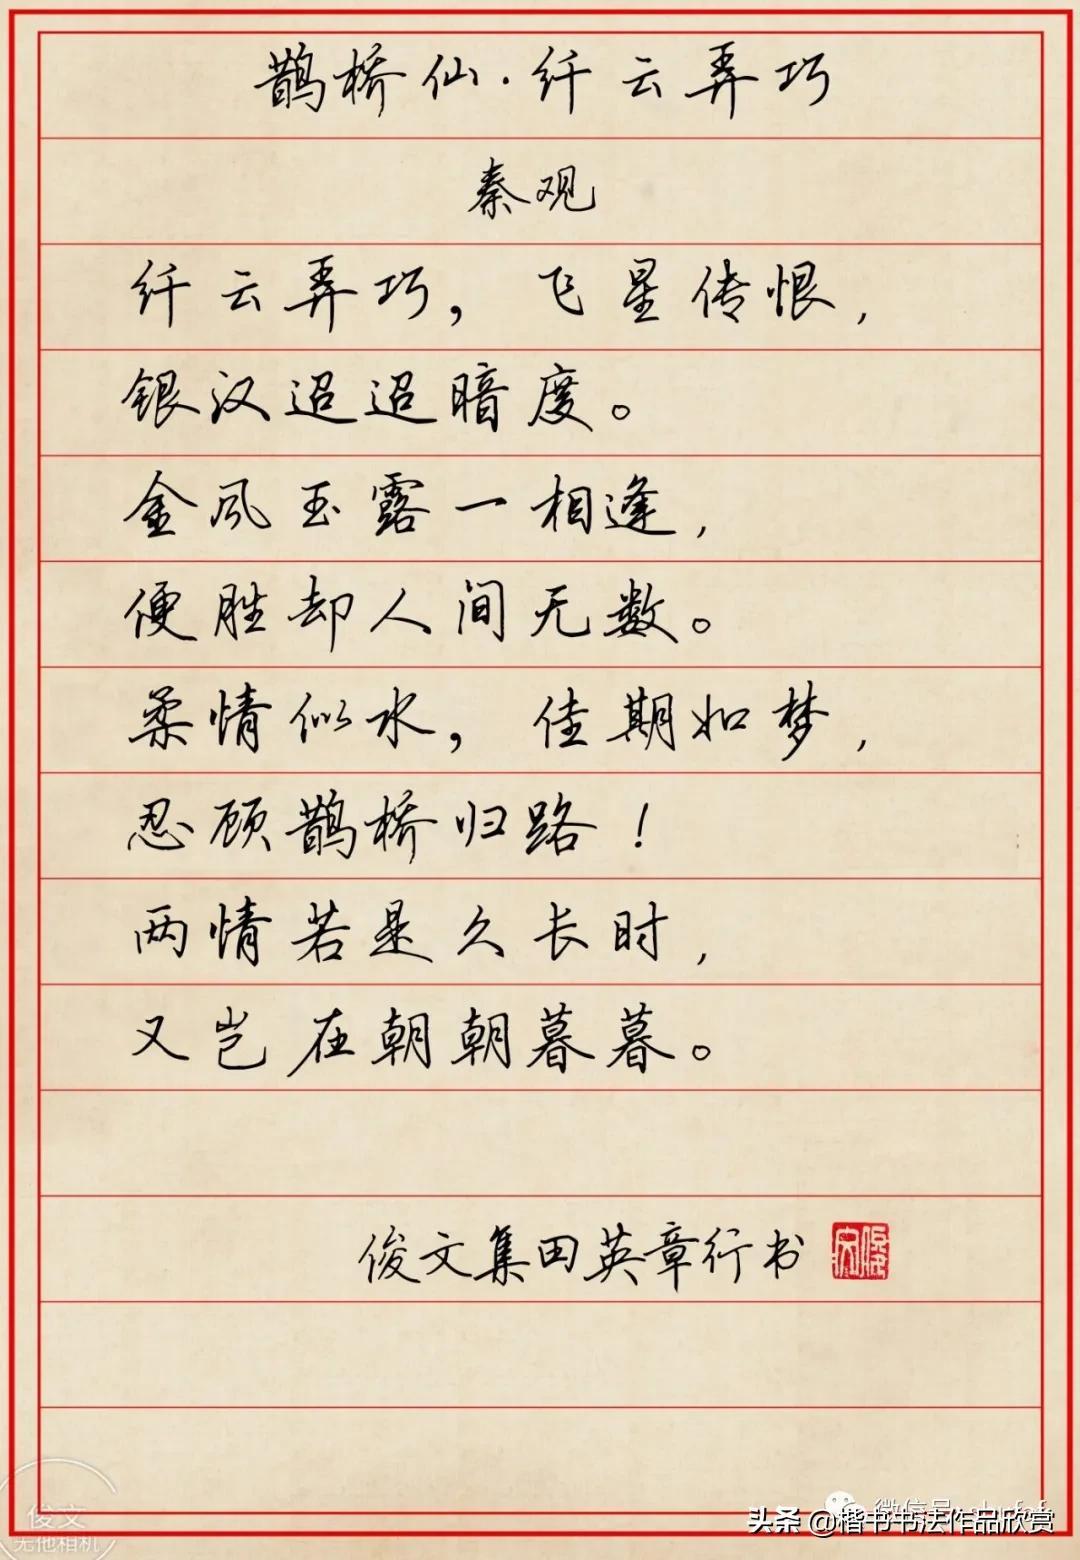 鹊桥仙·纤云弄巧
秦观
纤云弄巧，飞星传恨，
银汉迢迢暗度。
金风玉露一相逢，
便胜却人间无数。
柔情似水，佳期如梦，
忍顾鹊桥归路！
两情若是久长时，
又岂在朝朝暮暮。
俊文集田英章行书
俊文
俊文
无他相机
头条 @楷书书法作品欣赏